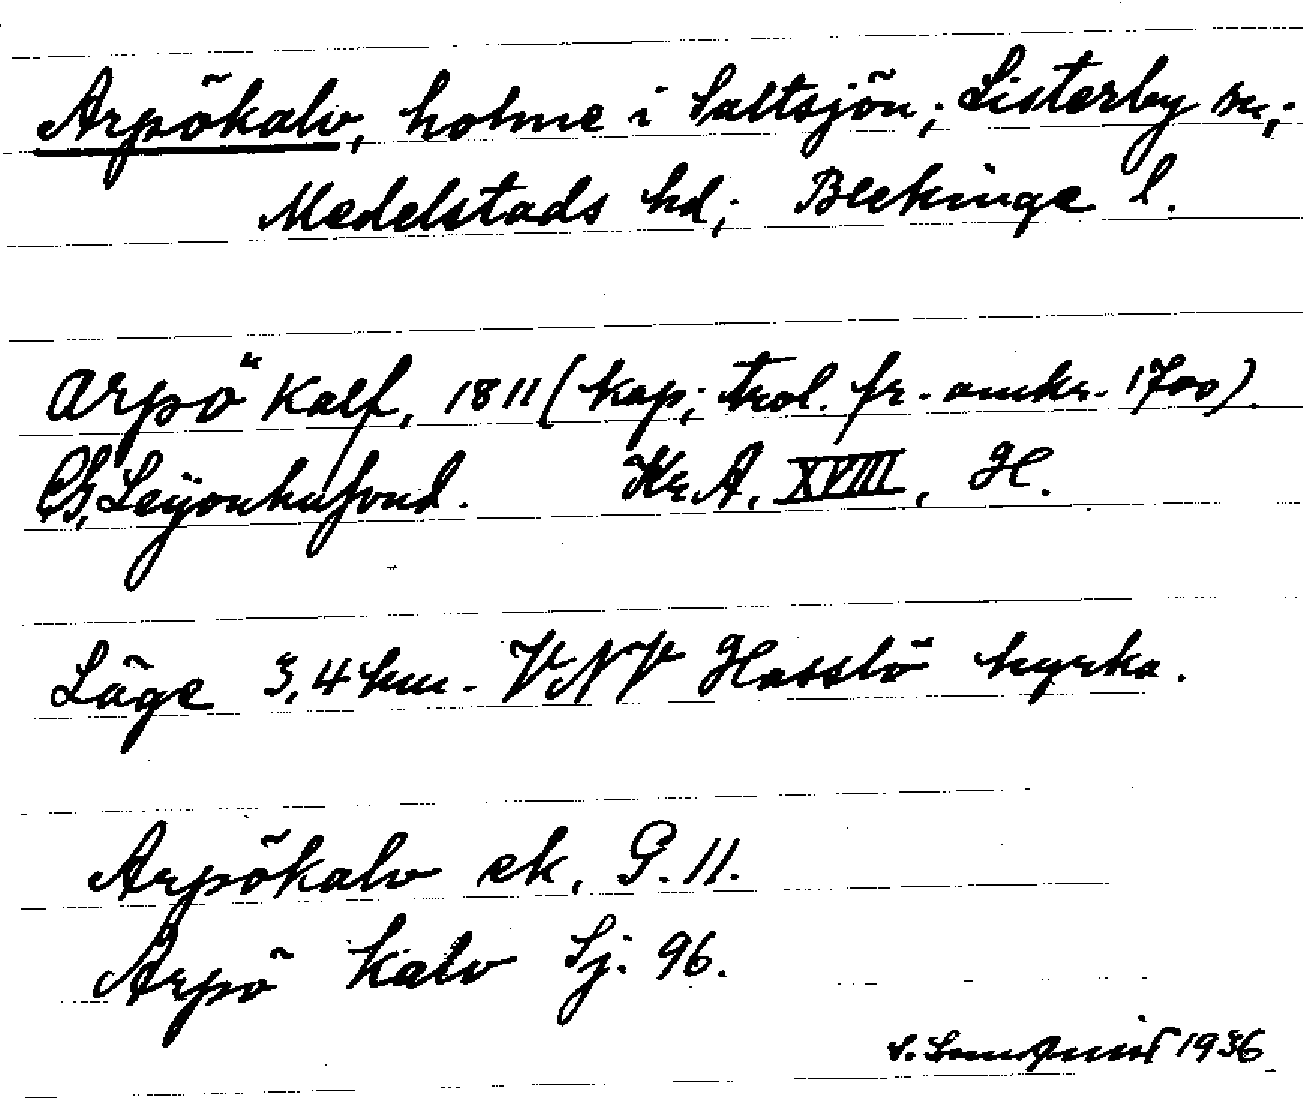 Arpökalv, holme i Saltsjön; Listerby sn,;
Medelstads hd; Blekinge l.
Arpö Kalf, 1811 (kop; trol. fr. omkr. 1700).
Leijonhufvud. Kr.A. XVIII, H.
Läge 3,4 km. VNV Hasslö kyrka.
Arpökalv ek. G. 11.
Arpö kalv Sj. 96.
S. 1936